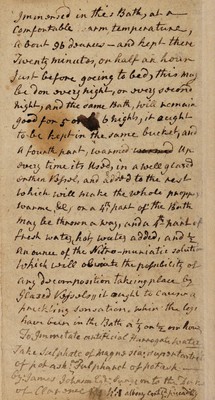 Immensed in the Bath, at a
Comfortable warm temperature,
about 96 degrees - and kept there
Twenty minutes, or half an hour
Just before going to bed, this may
be don every night, or every second
night, and the same Bath, will remain
good for 5 or 6 nights, it ought
to be kept in the same bucket, and
a fourth part, warmed up
every time its used, in a well glazed
Vessel, and added to the rest
which will make the whole proper
warme, &c, or a 4th part of the Bath
may be thrown away, and a 4th part of
fresh water, hot water added, and ½
an ounce of the Nitro-muriatic solution
which will obviate the possibility of
any decomposition taking place by
Glazed Vessels it ought to cause a
prickling sensation, when the legs
have been in the Bath a ½ or ¼ on hour
To Immetate artificial Harrogate water
Take Sulphate of magnesia, supertartrite
of potash, Sulphuret of potash
by James Johnson Esqr Surgeon to the Duke
of Clarence